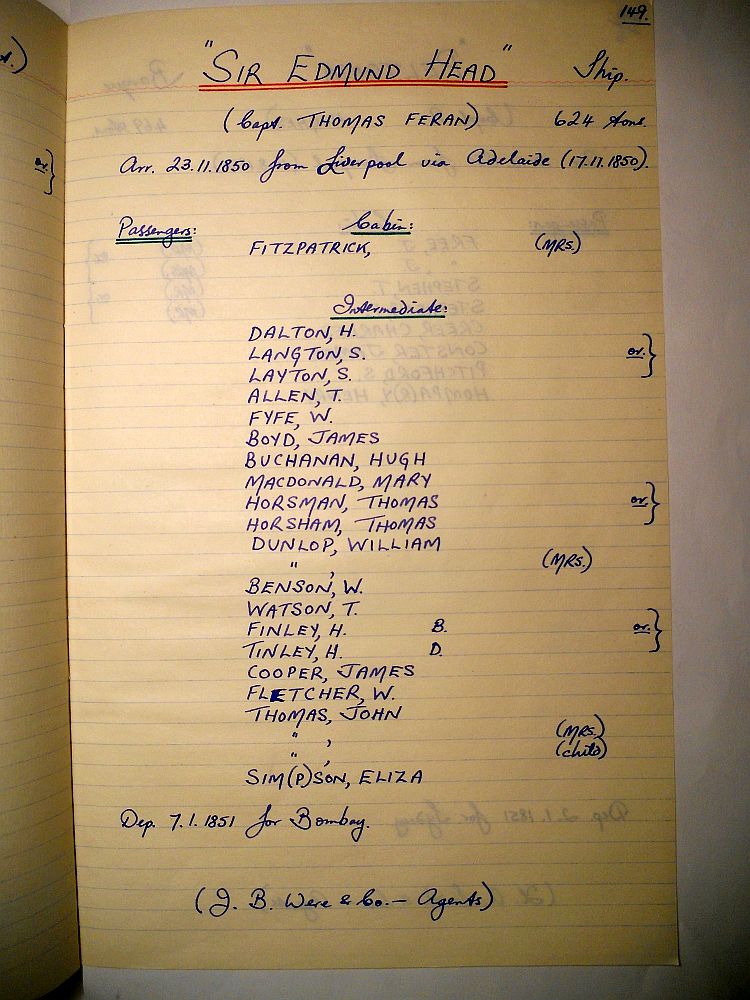 149.
"SIR EDMUND HEAD" Ship.
(Capt. THOMAS FERAN) 624 tons.
Arr. 23.11.1850 from Liverpool via Adelaide (17.11.1850).
Passengers: Cabin:
FITZPATRICK, (MRS.)
Intermediate:
DALTON, H.
LANGTON, S. or. }
LAYTON, S.
ALLEN, T.
FYFE, W.
BOYD, JAMES
BUCHANAN, HUGH
MACDONALD, MARY
HORSMAN, THOMAS or. }
HORSHAM, THOMAS
DUNLOP, WILLIAM
" , (MRS.)
BENSON, W.
WATSON, T.
FINLEY, H. B. or. }
TINLEY, H. D.
COOPER, JAMES
FLETCHER, W.
THOMAS, JOHN
" , (MRS.)
" , (child)
SIM(P)SON, ELIZA
Dep. 7.1.1851 for Bombay.
(J. B. Were & Co. — Agents)